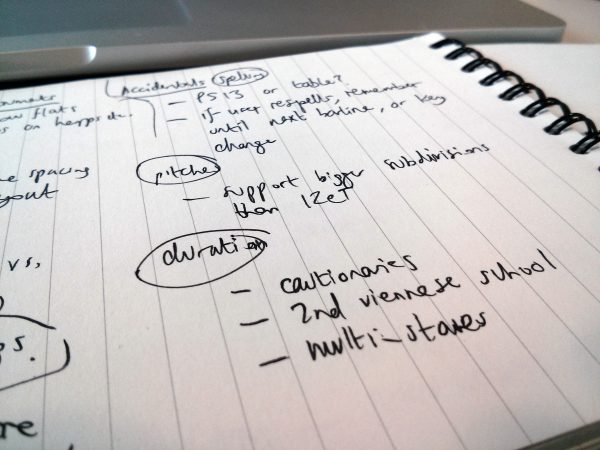 ow flats
s on harps etc.
e spacing
yout
vs,
ps.
re
Accidentals Spelling
— PS13 or table?
— If user respells, remember
until next barline, or key
change
pitches
— support bigger subdivisions
than 12ET
duration
— cautionaries
— 2nd viennese school
— multi-staves